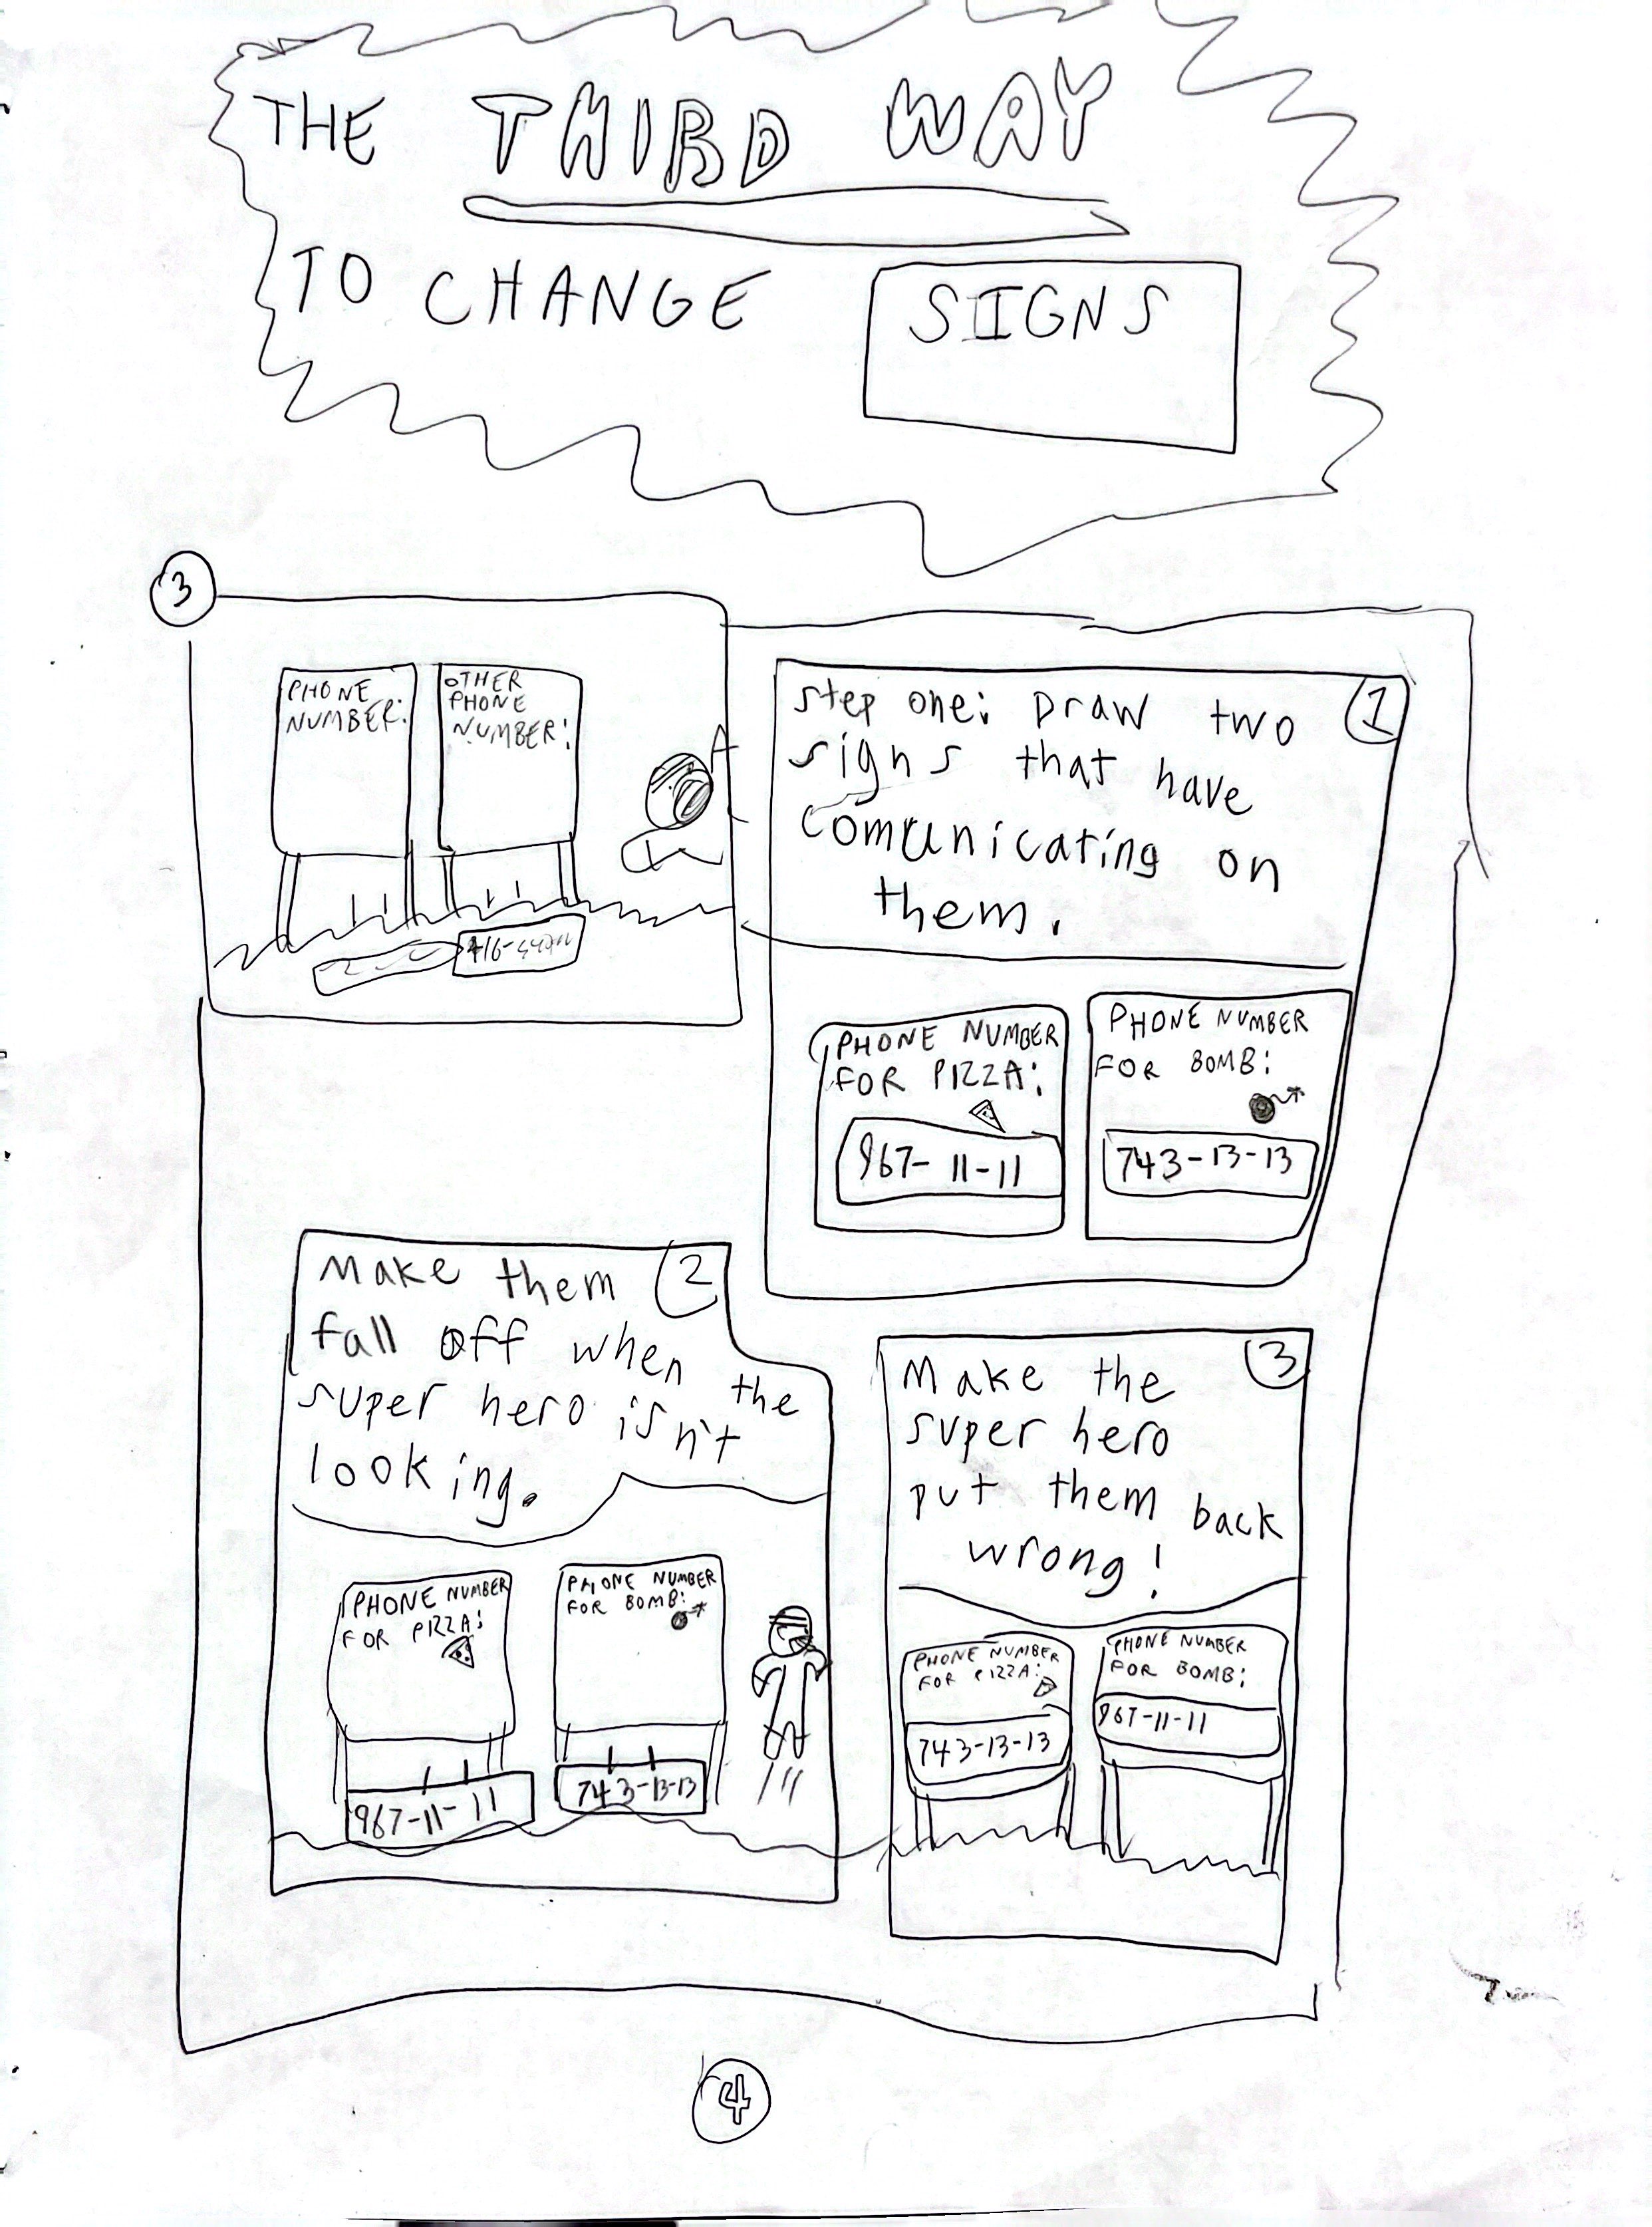 THE THIRD WAY
TO CHANGE SIGNS
3
PHONE
NUMBER:
OTHER
PHONE
NUMBER:
416-
step one: Draw two 1
signs that have
comunicating on
them.
PHONE NUMBER
FOR PIZZA:
967-11-11
PHONE NUMBER
FOR BOMB:
743-13-13
Make them 2
fall off when the
super hero isn't
looking.
PHONE NUMBER
FOR PIZZA:
967-11-11
PHONE NUMBER
FOR BOMB:
743-13-13
Make the 3
super hero
put them back
wrong!
PHONE NUMBER
FOR PIZZA:
743-13-13
PHONE NUMBER
FOR BOMB:
967-11-11
4